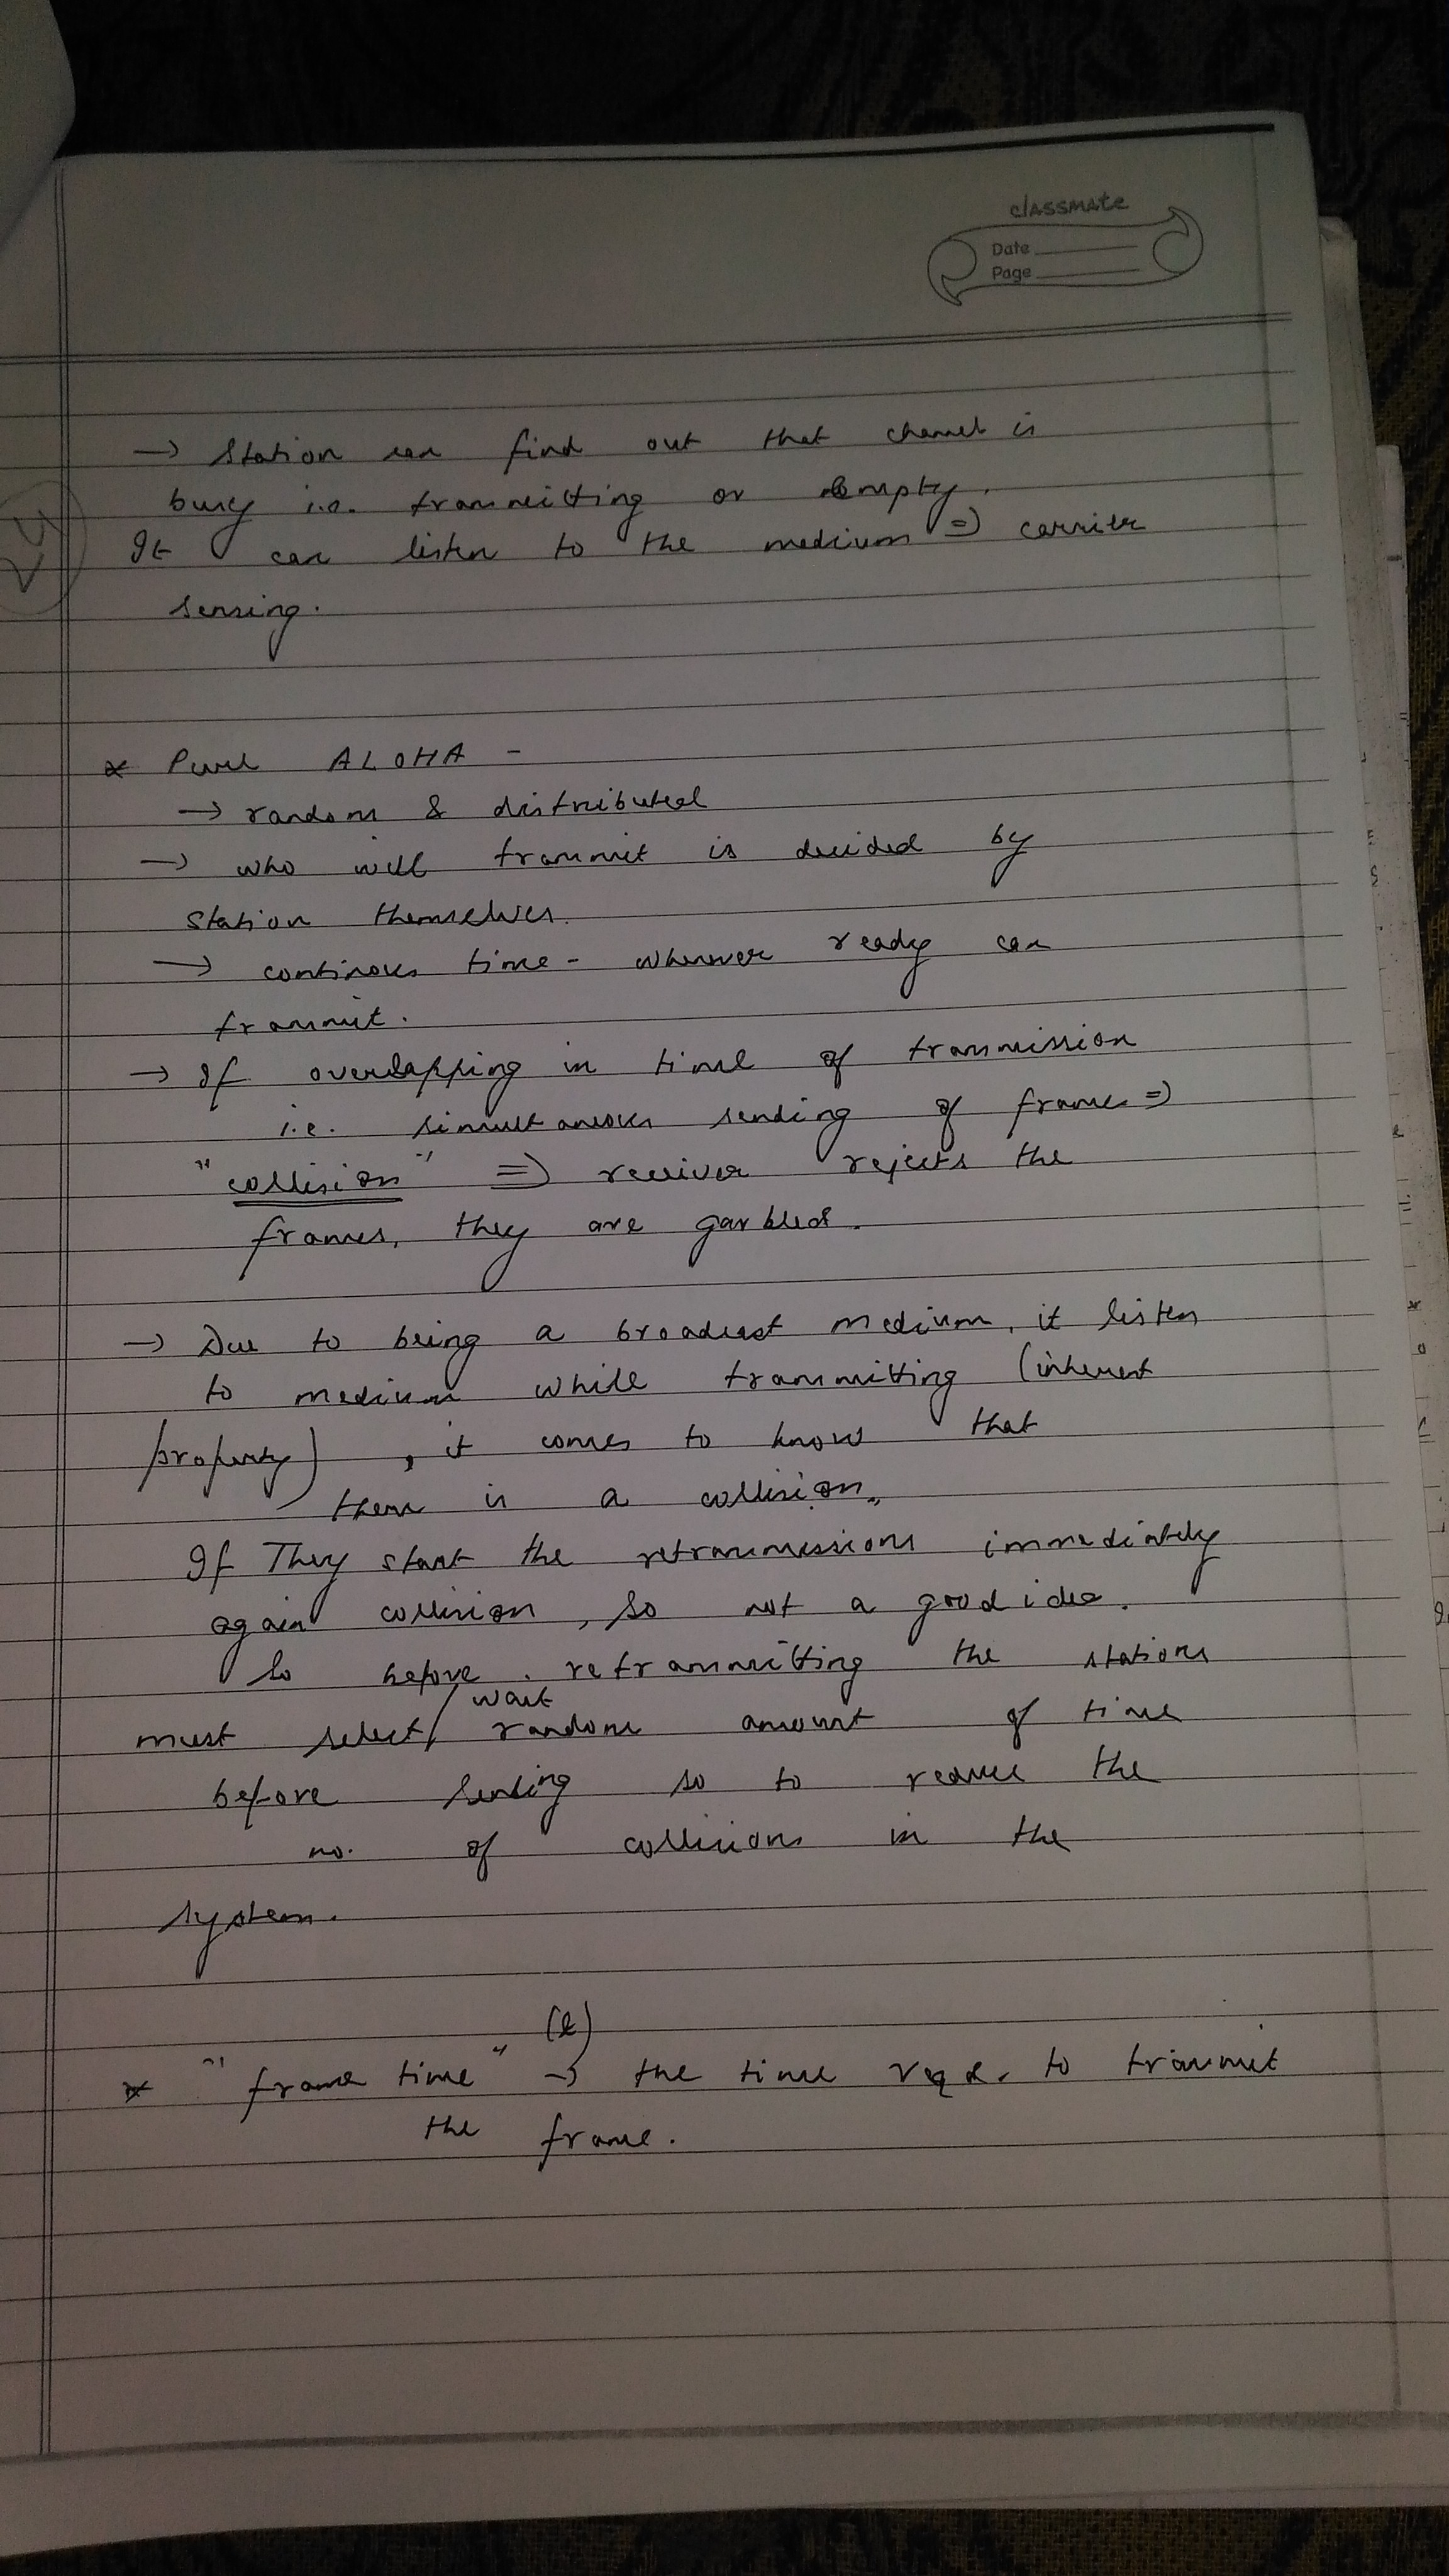 classmate
Date
Page
→ Station can find out that channel is
busy i.e. transmitting or empty.
It can listen to the medium ⇒ carrier
sensing.
* Pure ALOHA -
→ random & distributed
→ who will transmit is decided by
station themselves.
→ continous time - whenever ready can
transmit.
→ If overlapping in time of transmission
i.e. simultaneous sending of frames ⇒
"collision" ⇒ receiver rejects the
frames, they are garbled.
→ Due to being a broadcast medium, it listen
to medium while transmitting (inherent
property) , it comes to know that
there is a collision.
If They start the retransmissions immediately
again collision, so not a good idea.
So before retransmitting the stations
must select/wait random amount of time
before sending so to reduce the
no. of collisions in the
system.
* "frame time" → the time reqd. to transmit
the frame.